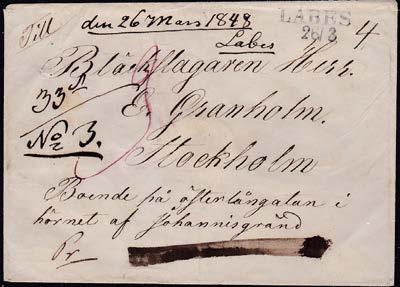 Till
den 26 Mars 1848
Labes
LABES
26/3
4
Bläckslagaren Herr.
33
E. Granholm.
No 3.
3
Stockholm
Boende på österlångatan i
hörnet af Johannisgränd
Pr